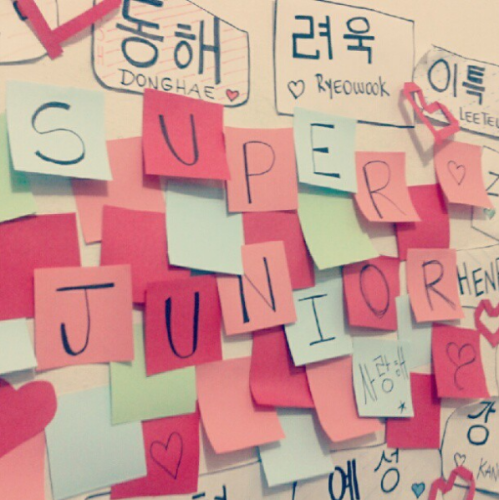 동해
DONGHAE
려욱
RYEOWOOK
이특
LEETEU
SUPER
JUNIOR
HEN
사랑해
강
KAN
예성